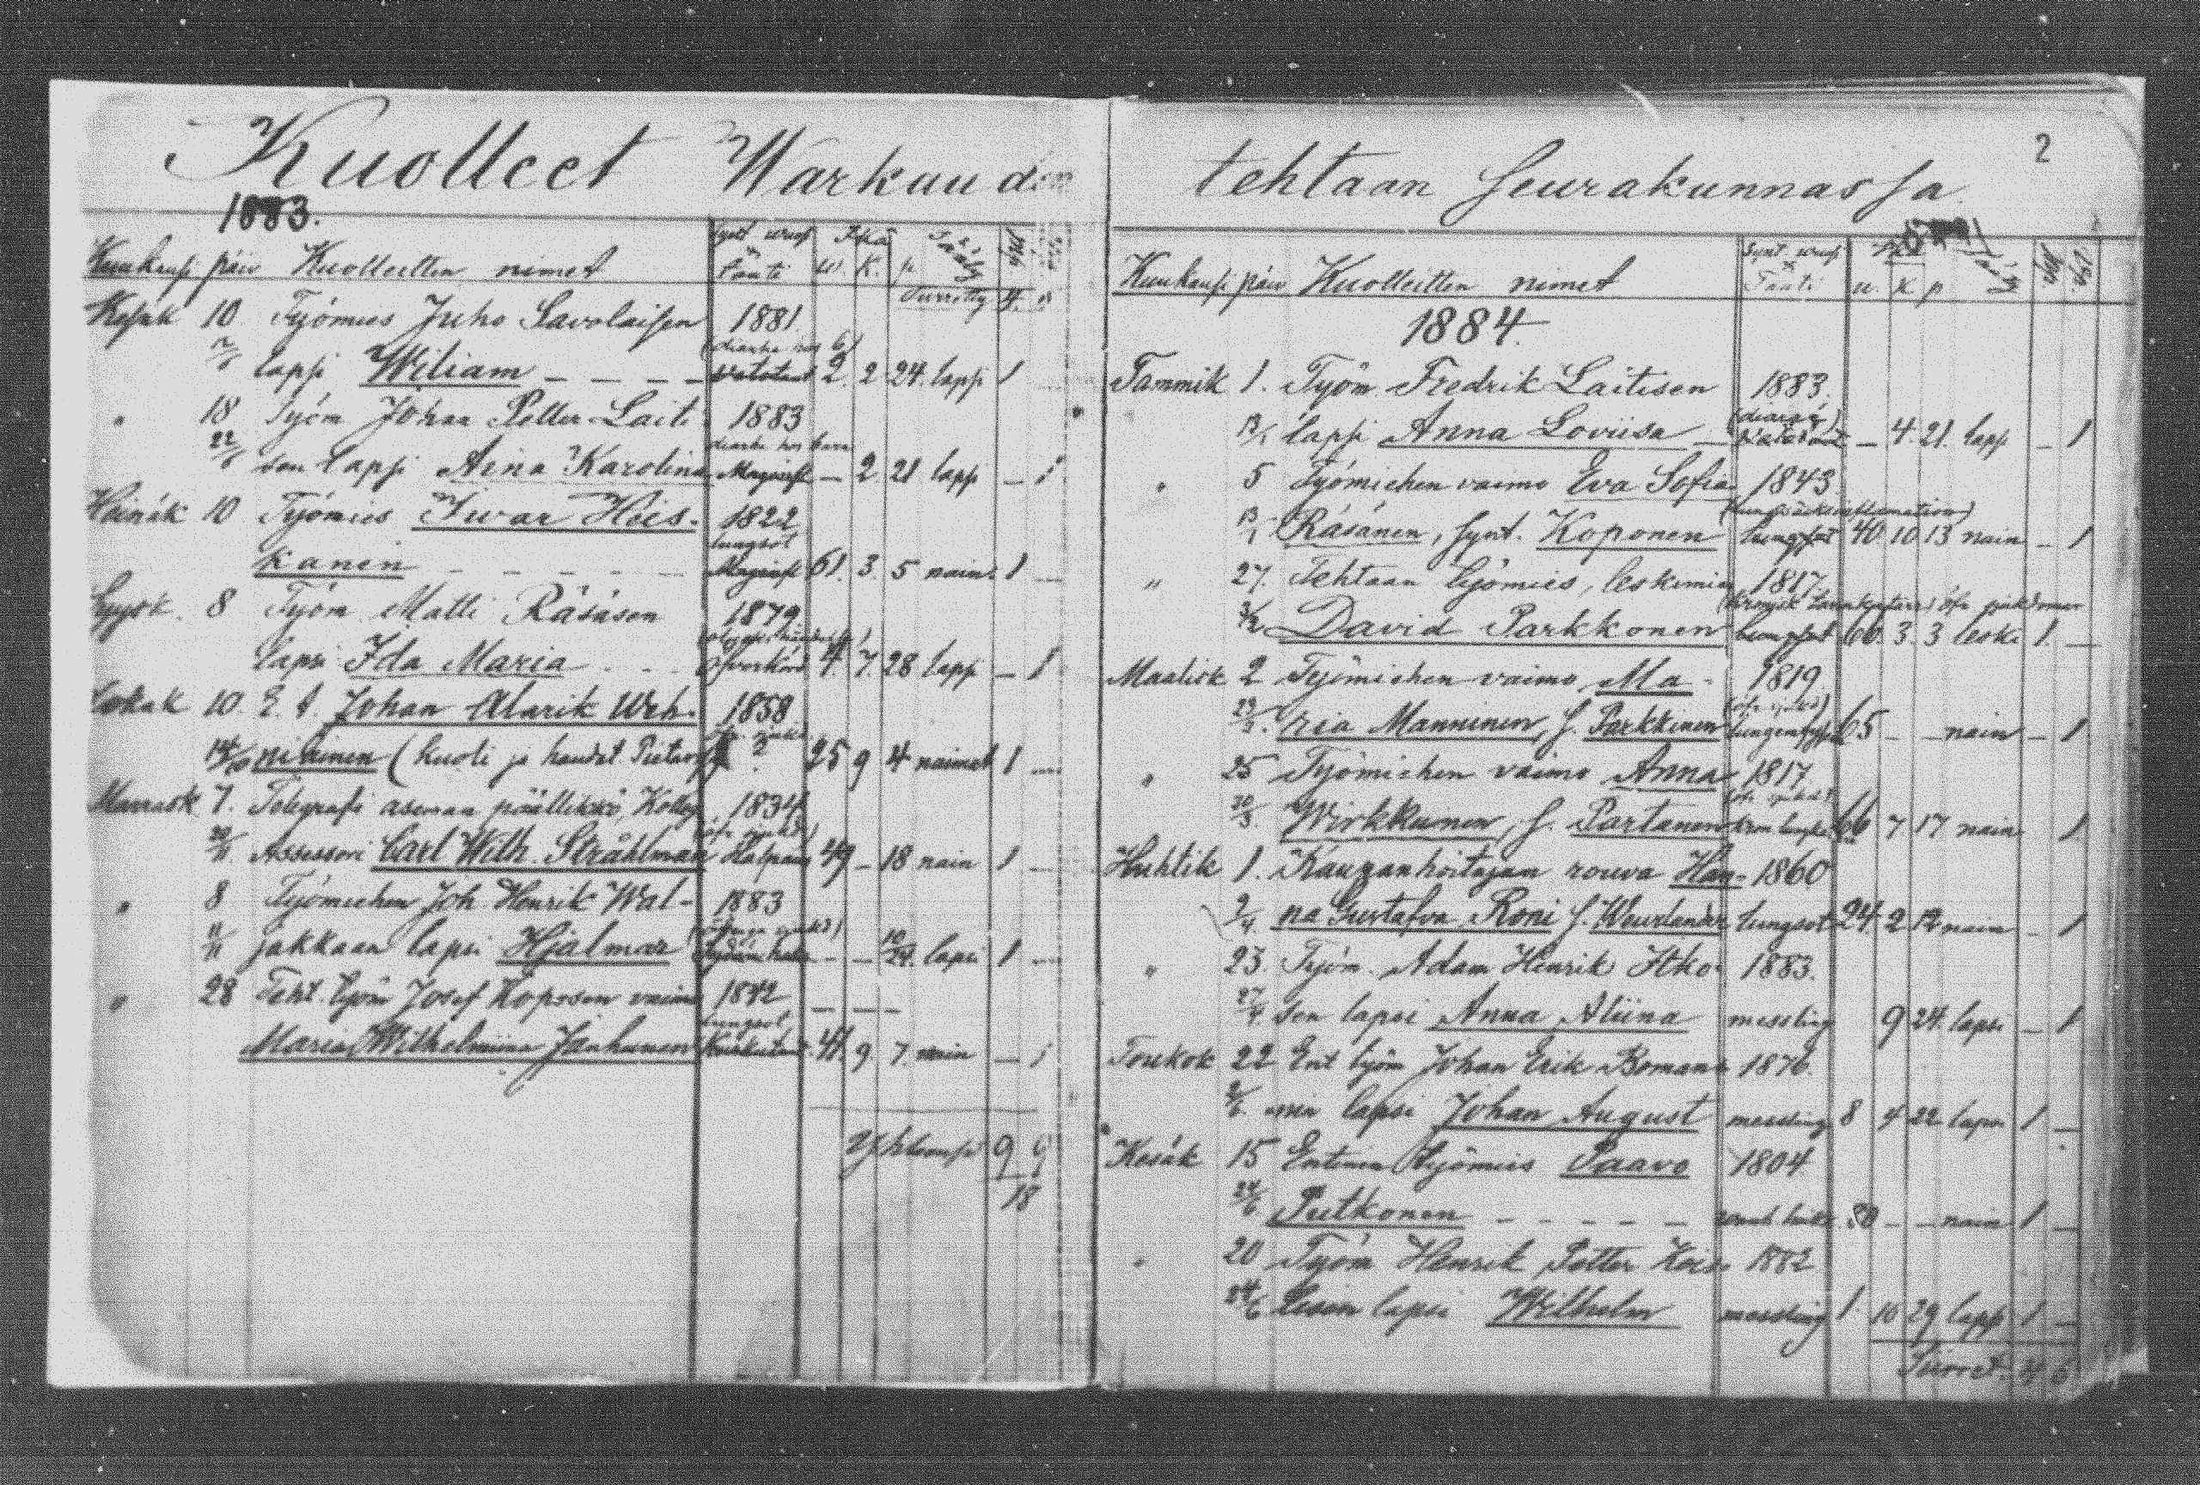 Kuolleet Warkauden
1883.
Kuukausi päiv Kuolleitten nimet Synt. wuos Ikä
Tauti w. k. p.
Siirretty 4.
Kesäk 10 Työmies Juho Savolaisen 1881
lapsi Wiliam 2. 2 24. lapsi 1
" 18 Työm Johan Petter Lait- 1883
22/6 sen lapsi Aina Karolina 2 21 lapsi 1
Heinäk 10 Työmies Iwar Heis- 1822
lungsot
kanen 61. 3. 5 nain. 1
Syysk. 8 Työm Matti Räsäsen 1879
lapsi Ida Maria 4. 7. 28 lapsi 1
Lokak 10. E. I. Johan Alarik Weh- 1858
14/10 niäinen (kuoli ja haudat. ? 25 9 4 naimat 1
Marrask 7. Telegrafi aseman päällikkö, Kolleg. 1834
Assessori Carl Wilh. Stråhlman 49 18 nain 1
" 8 Työmiehen Joh. Henrik Wal- 1883
11/11 jakkaan lapsi Hjalmar lapsi 1
" 28 Teht työm Josef Koposen vaimo 1842
lungsot
Maria Wilhelmiina Janhunen 41. 9. 7. nain 1
Yhteensä 9 9
18
2
tehtaan seurakunnassa
Kuukausi päiv Kuolleitten nimet Synt. wuos
Tauti w. k. p.
1884.
Tammik 1. Työm. Fredrik Laitisen 1883.
13/1 lapsi Anna Loviisa 4. 21. lapsi 1
" 5 Työmiehen vaimo Eva Sofia 1843
13/1 Räsänen, synt. Koponen 40 10 13 nain 1
" 27. Tehtaan työmies, leskimies 1817
3/2 David Parkkonen 66. 3. 3 leski 1.
Maalisk 2 Työmiehen vaimo Ma- 1819
23/3. ria Manninen, s. Parkkinen 65 nain 1
" 25 Työmiehen vaimo Anna 1817
30/3 Wirkkunen, s. Partanen 66 7 17 nain. 1
Huhtik 1. Kaupanhoitajan rouva Han- 1860
9/4 na Gustafva Roni s. lungsot 24. 2 12 nain 1
" 23. Työm. Adam Henrik Itko- 1883.
27/4 sen lapsi Anna Aliina messling 9 24. lapsi 1
Toukok 22 Ent työm Johan Erik 1876.
lapsi Johan August messling 8 4 22 lapsi 1
Kesäk 15 Entinen työmies Paavo 1804
24/6 Putkonen 80 nain 1
" 20 Työm Henrik Petter Heis- 1882
24/6 lapsi Wilholm messling 1 10 29 lapsi 1
Siirret. 4 6